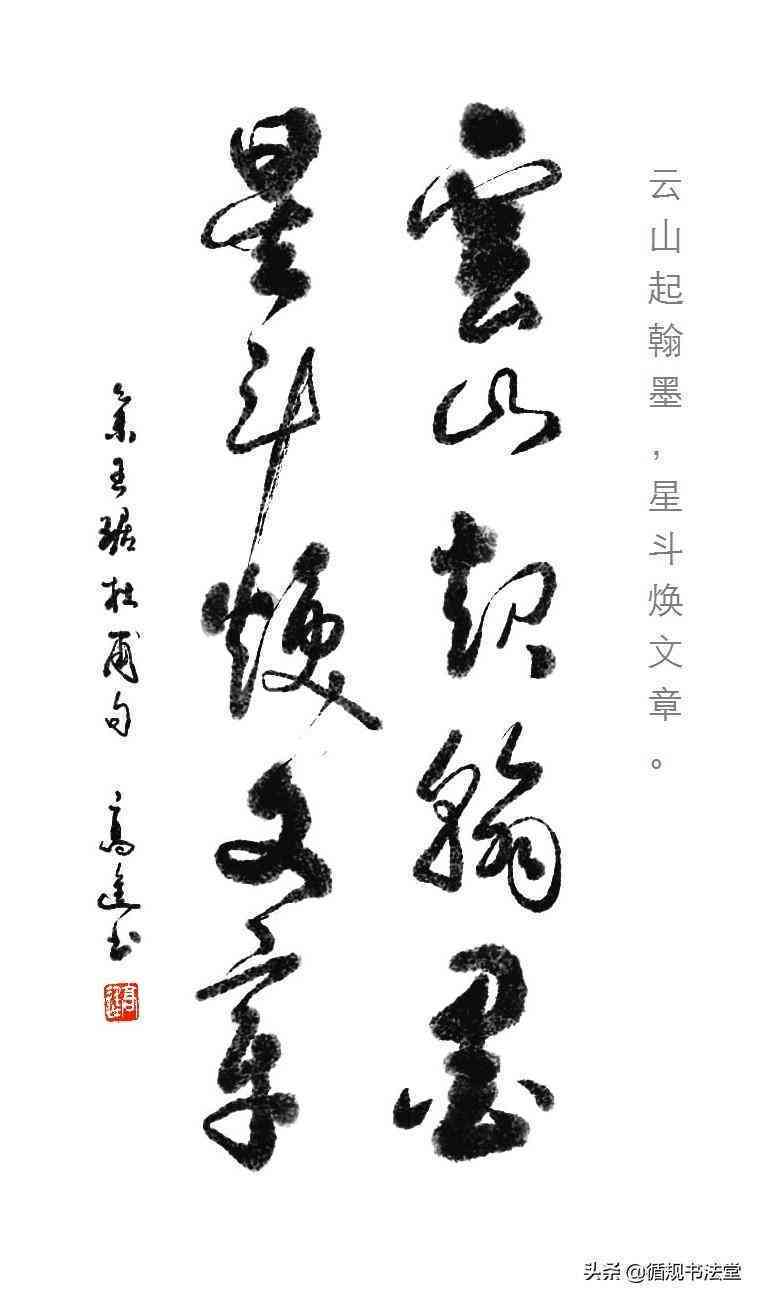 云山起翰墨,星斗焕文章。
雲山起翰墨
星斗煥文章
集王琚杜甫句 高進书
头条 @循规书法堂